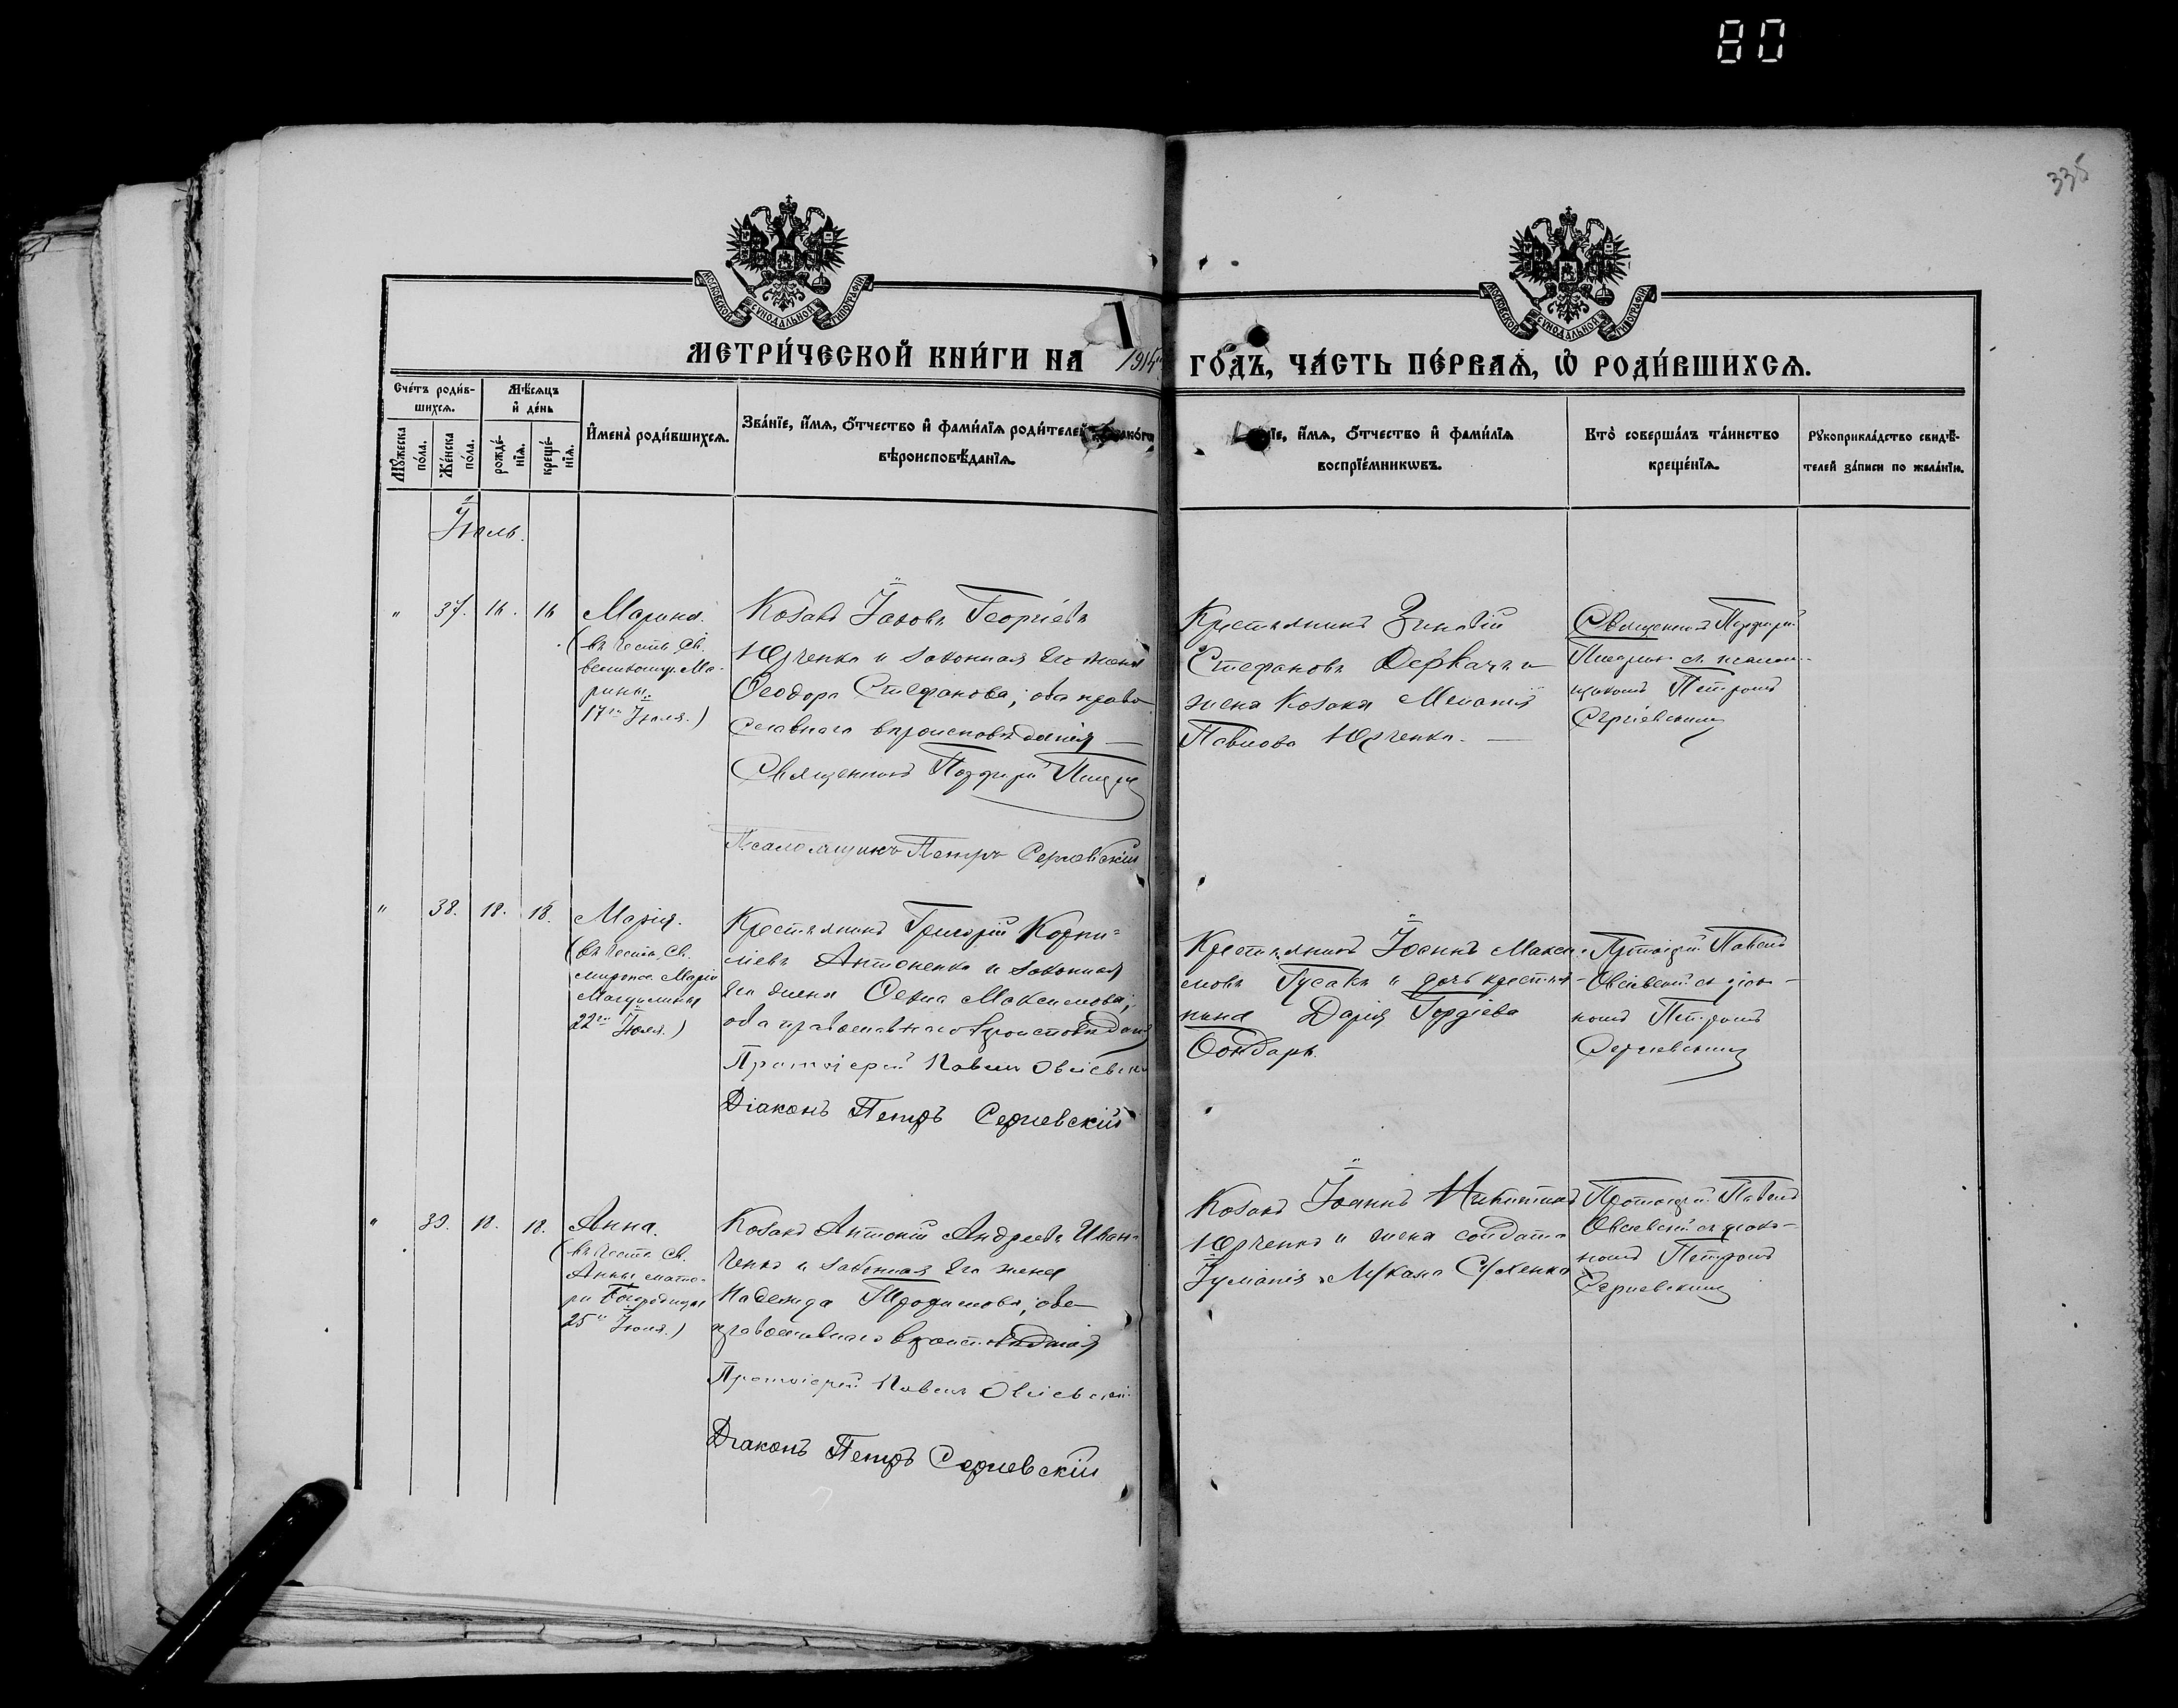 80
335
МОСКОВСКОЙ СѴНОДАЛЬНОЙ ТИПОГРАФІИ
МОСКОВСКОЙ СѴНОДАЛЬНОЙ ТИПОГРАФІИ
МЕТРИ́ЧЕСКОЙ КНИ́ГИ НА 1914 ГО́ДЪ, ЧА́СТЬ ПЕ́РВАѦ, Ѡ҆ РОДИ́ВШИХСѦ.
Сче́тъ роди́в-
шихсѧ.
Мꙋ́жеска
по́ла.
Же́нска
по́ла.
Мѣ́сѧцъ
и҆ де́нь
рожде́-
нїѧ.
креще́-
нїѧ.
И҆мена̀ роди́вшихсѧ.
Зва́нїе, и҆́мѧ, ѻ҆́тчество и҆ фами́лїѧ роди́телей
вѣроисповѣ́данїѧ.
и҆́мѧ, ѻ҆́тчество и҆ фами́лїѧ
воспрїе́мникѡвъ.
Кто̀ соверша́лъ та́инство
креще́нїѧ.
Рꙋкоприкла́дство свидѣ́-
телей за́писи по жела́нїю.
Іюль.
" 37. 16. 16
Марина.
(въ честь св.
великомуч. Ма-
рины.
17го Іюля.)
Козакъ Іаковъ Георгіевъ
Юрченко и законная его жена
Ѳеодора Стефанова, оба право
славнаго вѣроисповѣданія —
Священникъ Порфирій
Псаломщикъ Петръ Сергіевскій
Крестьянинъ Зиновій
Стефановъ Деркачъ и
жена козака Меланія
Павлова Юрченко. —
Священникъ Порфирій
съ псалом-
щикомъ Петромъ
Сергіевскимъ
" 38. 18. 18.
Марія.
(въ честь св.
мироно. Маріи
Магдалины
22го Іюля.)
Крестьянинъ Григорій Корни-
ліевъ Антоненко и законная
его жена Максимова,
оба православнаго вѣроисповѣданія
Протоіерей Павелъ Овсіевскій
Діаконъ Петръ Сергіевскій
Крестьянинъ Іоаннъ Макси-
мовъ Гусакъ и дочь крестья-
нина Дарія Гордіева
Бондарь.
Протоіерей Павелъ
Овсіевскій съ діако-
номъ Петромъ
Сергіевскимъ
" 39. 18. 18.
Анна.
(въ честь св.
Анны мате-
ри Богородицы
25го Іюля.)
Козакъ Антоній Андреевъ Иван-
ченко и законная его жена
Надежда Трофимова, оба
православнаго вѣроисповѣданія
Протоіерей Павелъ Овсіевскій.
Діаконъ Петръ Сергіевскій
Козакъ Іоаннъ Никитинъ
Юрченко и жена солдата
Іуліанія Сухенко
Протоіерей Павелъ
Овсіевскій съ діако-
номъ Петромъ
Сергіевскимъ